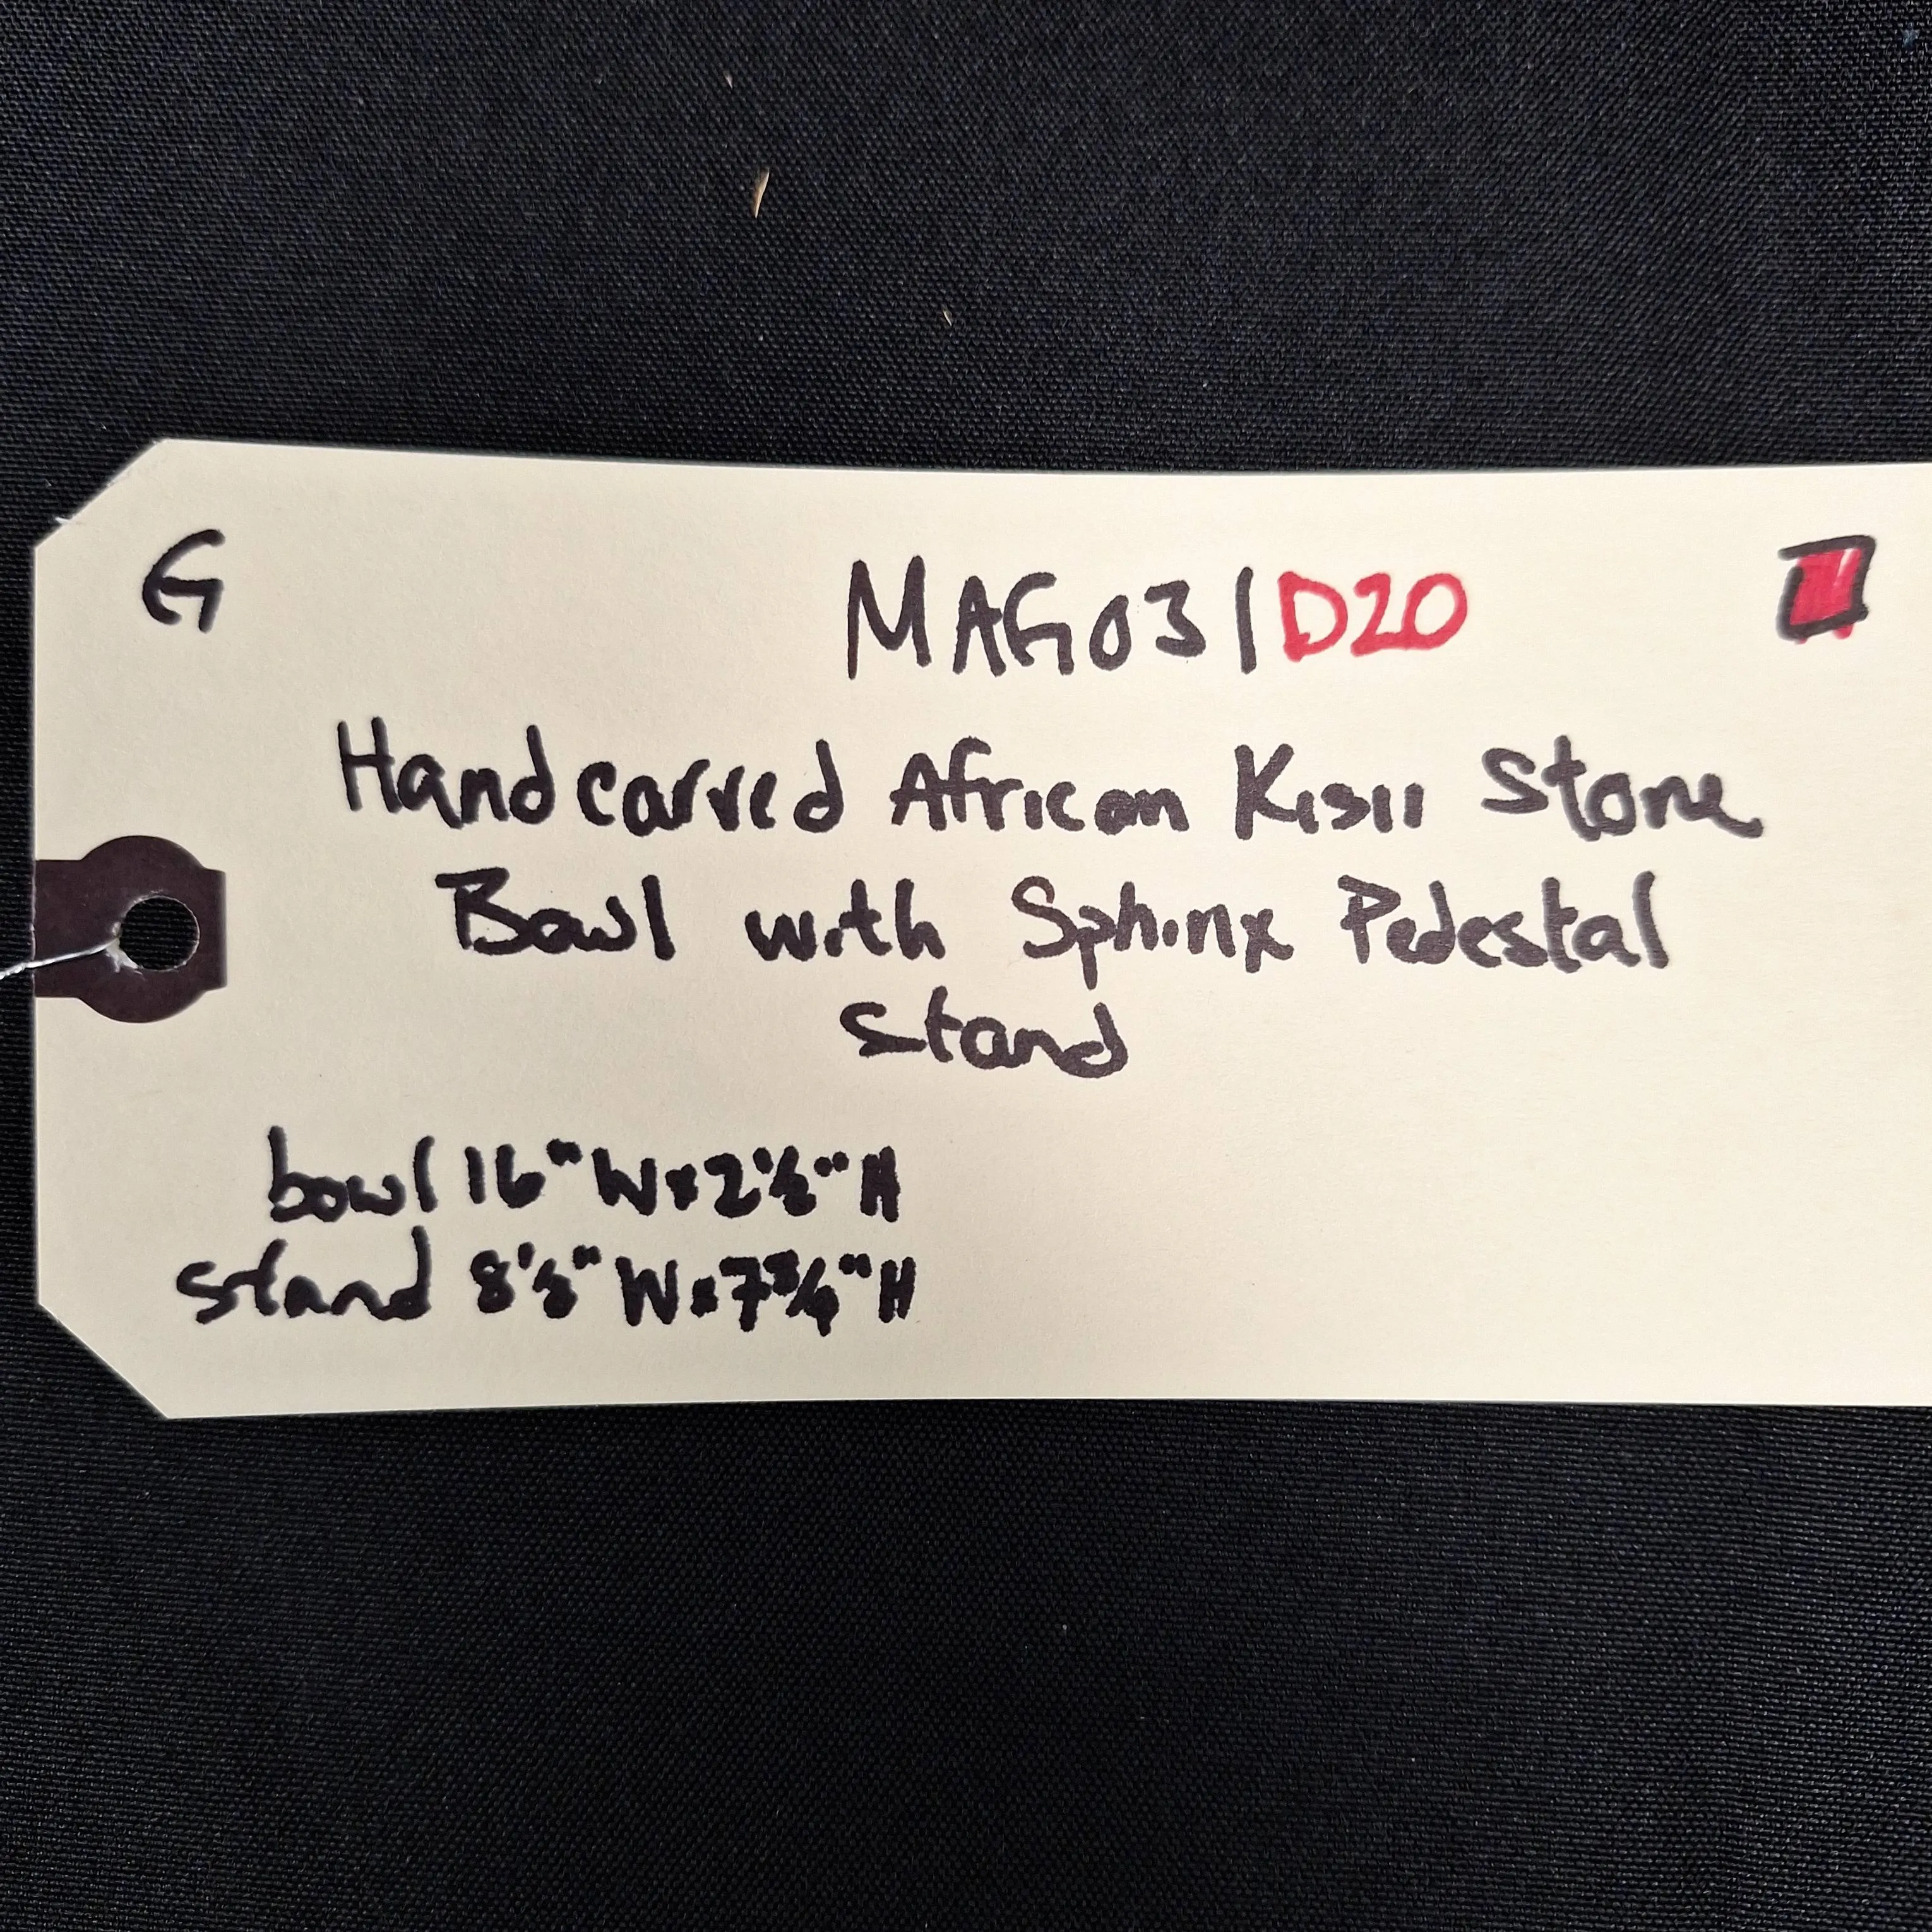 G
MAG031D20
Handcarved African Kisii Stone
Bowl with Sphinx Pedestal
Stand
bowl 16" W x 2 1/2" H
stand 8 1/2" W x 7 3/4" H